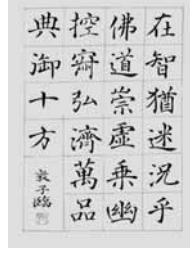 在智猶迷況乎
佛道崇虛乗幽
控寂弘濟萬品
典御十方
敦子臨